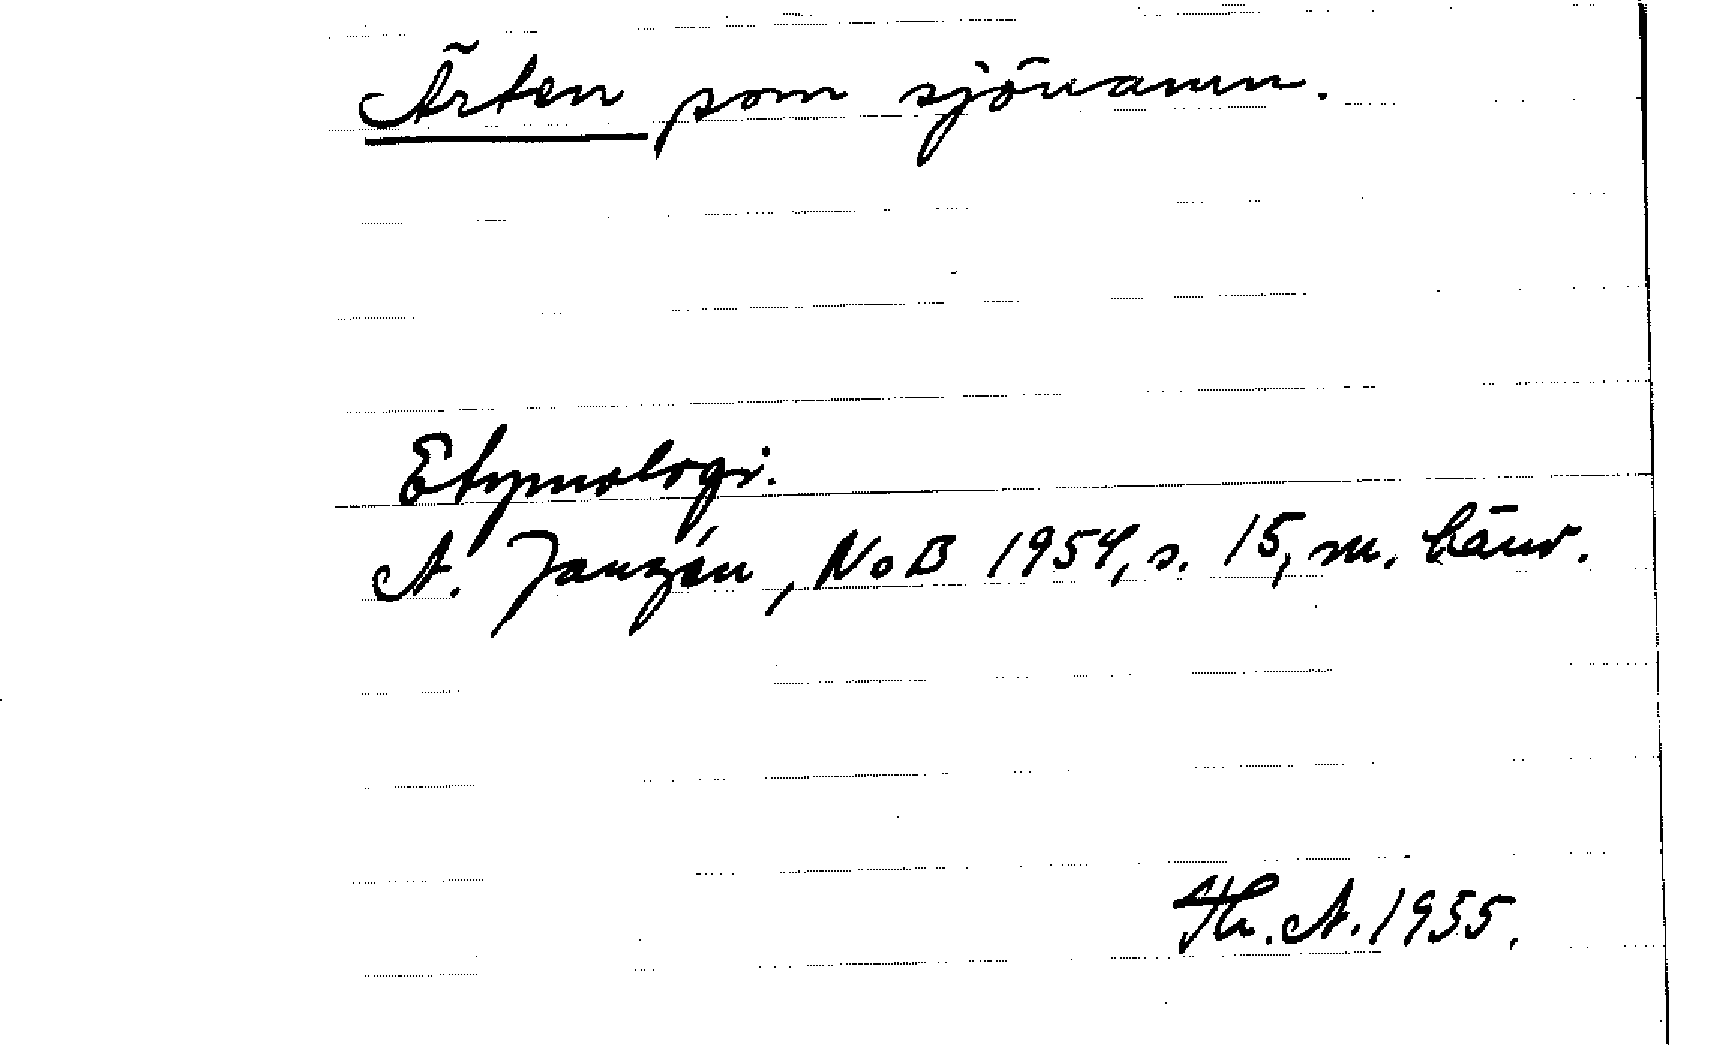 Ärten som sjönamn.
Etymologi.
A. Janzén, NoB 1954, s. 15, m. hänv.
Th. A. 1955.